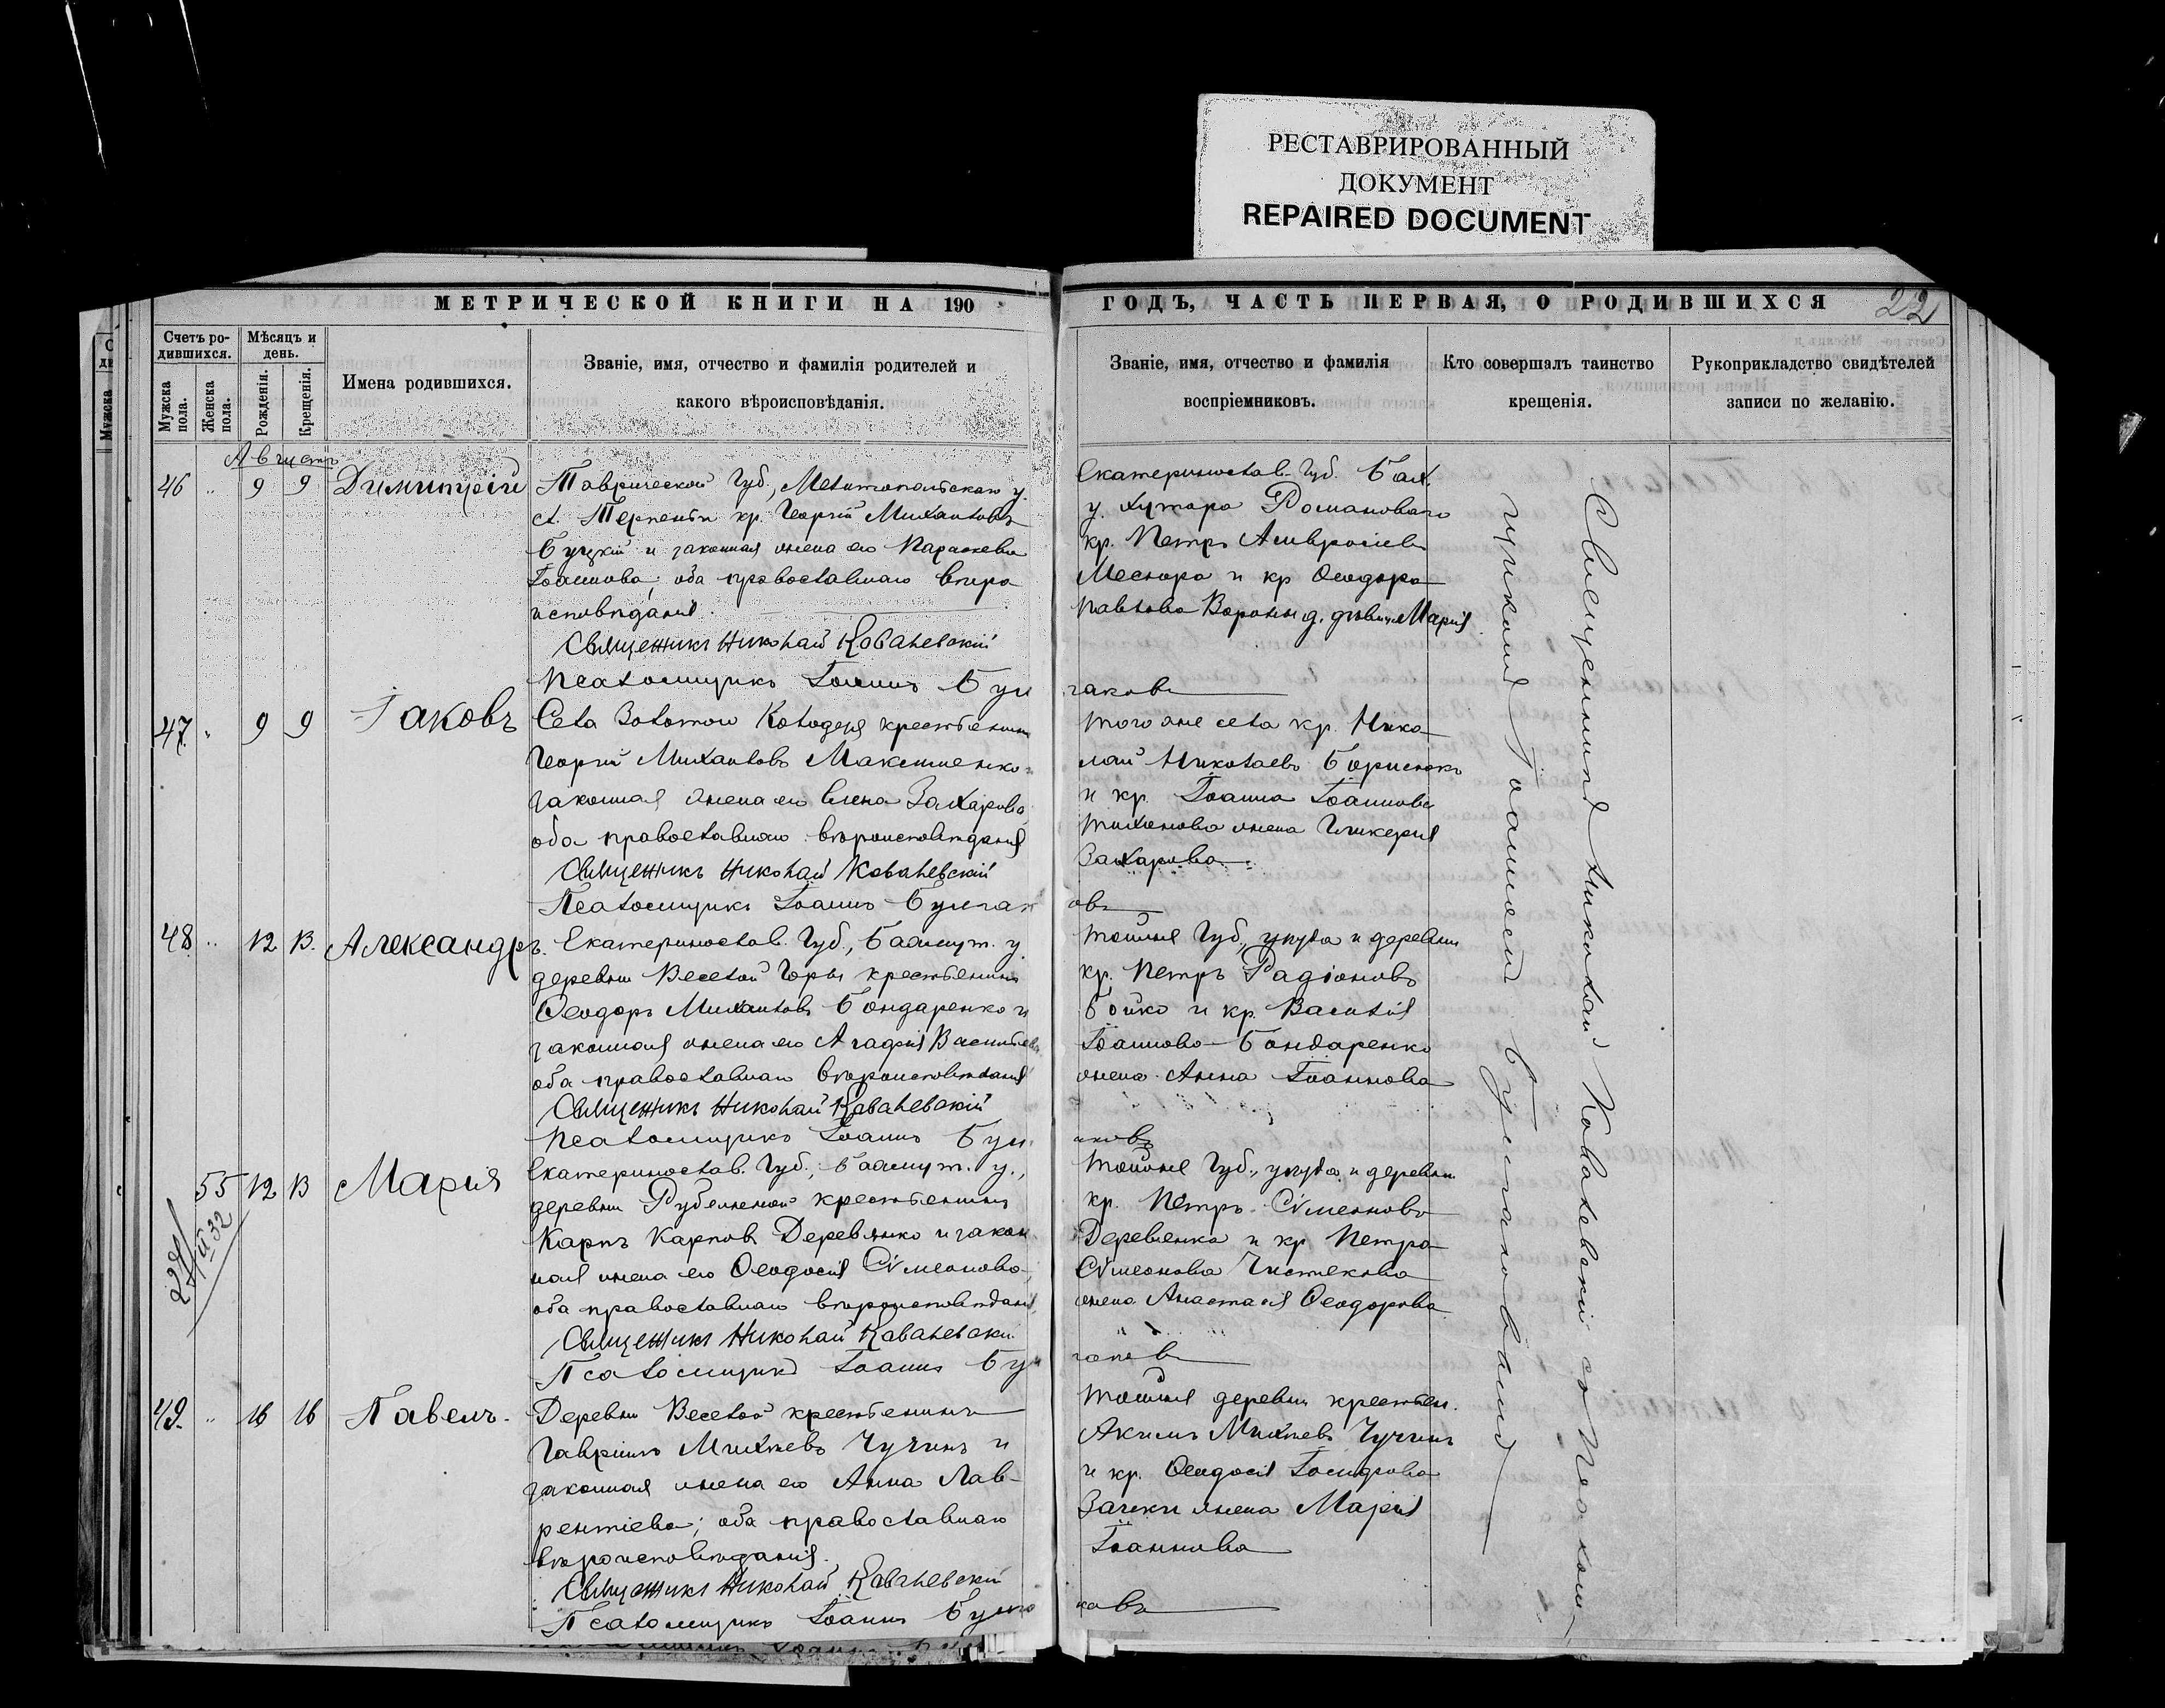 РЕСТАВРИРОВАННЫЙ
ДОКУМЕНТ
REPAIRED DOCUMENT
МЕТРИЧЕСКОЙ КНИГИ НА 190
ГОДЪ, ЧАСТЬ ПЕРВАЯ, О РОДИВШИХСЯ
22
Счетъ ро-
дившихся.
Мужска
пола.
Женска
пола.
Мѣсяцъ и
день.
Рожденія.
Крещенія.
Имена родившихся.
Званіе, имя, отчество и фамилія родителей и
какого вѣроисповѣданія.
Званіе, имя, отчество и фамилія
воспріемниковъ.
Кто совершалъ таинство
крещенія.
Рукоприкладство свидѣтелей
записи по желанію.
Августъ
46 " 9 9 Димитрій
Таврической Губ., Мелитопольскаго у.
с. Терпенія кр. Георгій Михаиловъ
Буцкій и законная жена его Параскева
Іоаннова, оба православнаго вѣро
исповѣданія.
Священникъ Николай Коваленскій
Псаломщикъ Іоаннъ Бул
Екатеринослав. Губ. Бах.
у. хутора Романоваго
кр. Петръ Амвросіевъ
кр. Ѳеодора
Павлова Вороны д. дѣвица Марія
гаковъ
47. " 9 9 Іаковъ
Села Золотого Колодезя крестьянинъ
Георгій Михаиловъ Максименко и
законная жена его Елена Захарова
оба православнаго вѣроисповѣданія
Священникъ Николай Коваленскій
Псаломщикъ Іоаннъ Булгак
того же села кр. Нико
лай Николаевъ Борисенко
и кр. Іоанна Іоаннова
Тихонова жена Гликерія
Захарова
овъ
48 " 12 13. Александръ.
Екатеринослав. Губ., Бахмут. у.
деревни Веселой Горы крестьянинъ
Ѳеодоръ Михаиловъ Бондаренко и
законная жена его Агафія Васильева
оба православнаго вѣроисповѣданія
Священникъ Николай Коваленскій
Псаломщикъ Іоаннъ Бул
тойже Губ., уѣзда и деревни
кр. Петръ Радіоновъ
Бойко и кр. Василія
Іоаннова Бондаренко
жена Анна Іоаннова
аковъ
55 12 13 Марія
Екатеринослав. Губ., Бахмут. у.,
деревни крестьянинъ
Карпъ Карповъ Деревянко и закон
ная жена его Ѳеодосія Сѵмеонова,
оба православнаго вѣроисповѣданія,
Священникъ Николай Коваленскій
Псаломщикъ Іоаннъ Бул
тойже Губ., уѣзда и деревни
кр. Петръ Сѵмеоновъ
Деревенко и кр Петра
Сѵмеонова
жена Анастасія Ѳеодорова
гаковъ
49. " 16 16 Павелъ.
Деревни Веселой крестьянинъ
Гавріилъ Михеевъ Чучинъ и
законная жена его Анна Лав-
рентіева; оба православнаго
вѣроисповѣданія.
Священникъ Николай Коваленскій
Псаломщикъ Іоаннъ Булга
тойже деревни крестьян.
Акимъ Михеевъ Чучинъ
и кр. Ѳеодосія
жена Марія
Іоаннова
ковъ
Священникъ Николай Коваленскій съ Псалом-
щикомъ Іоанномъ Булгаковымъ